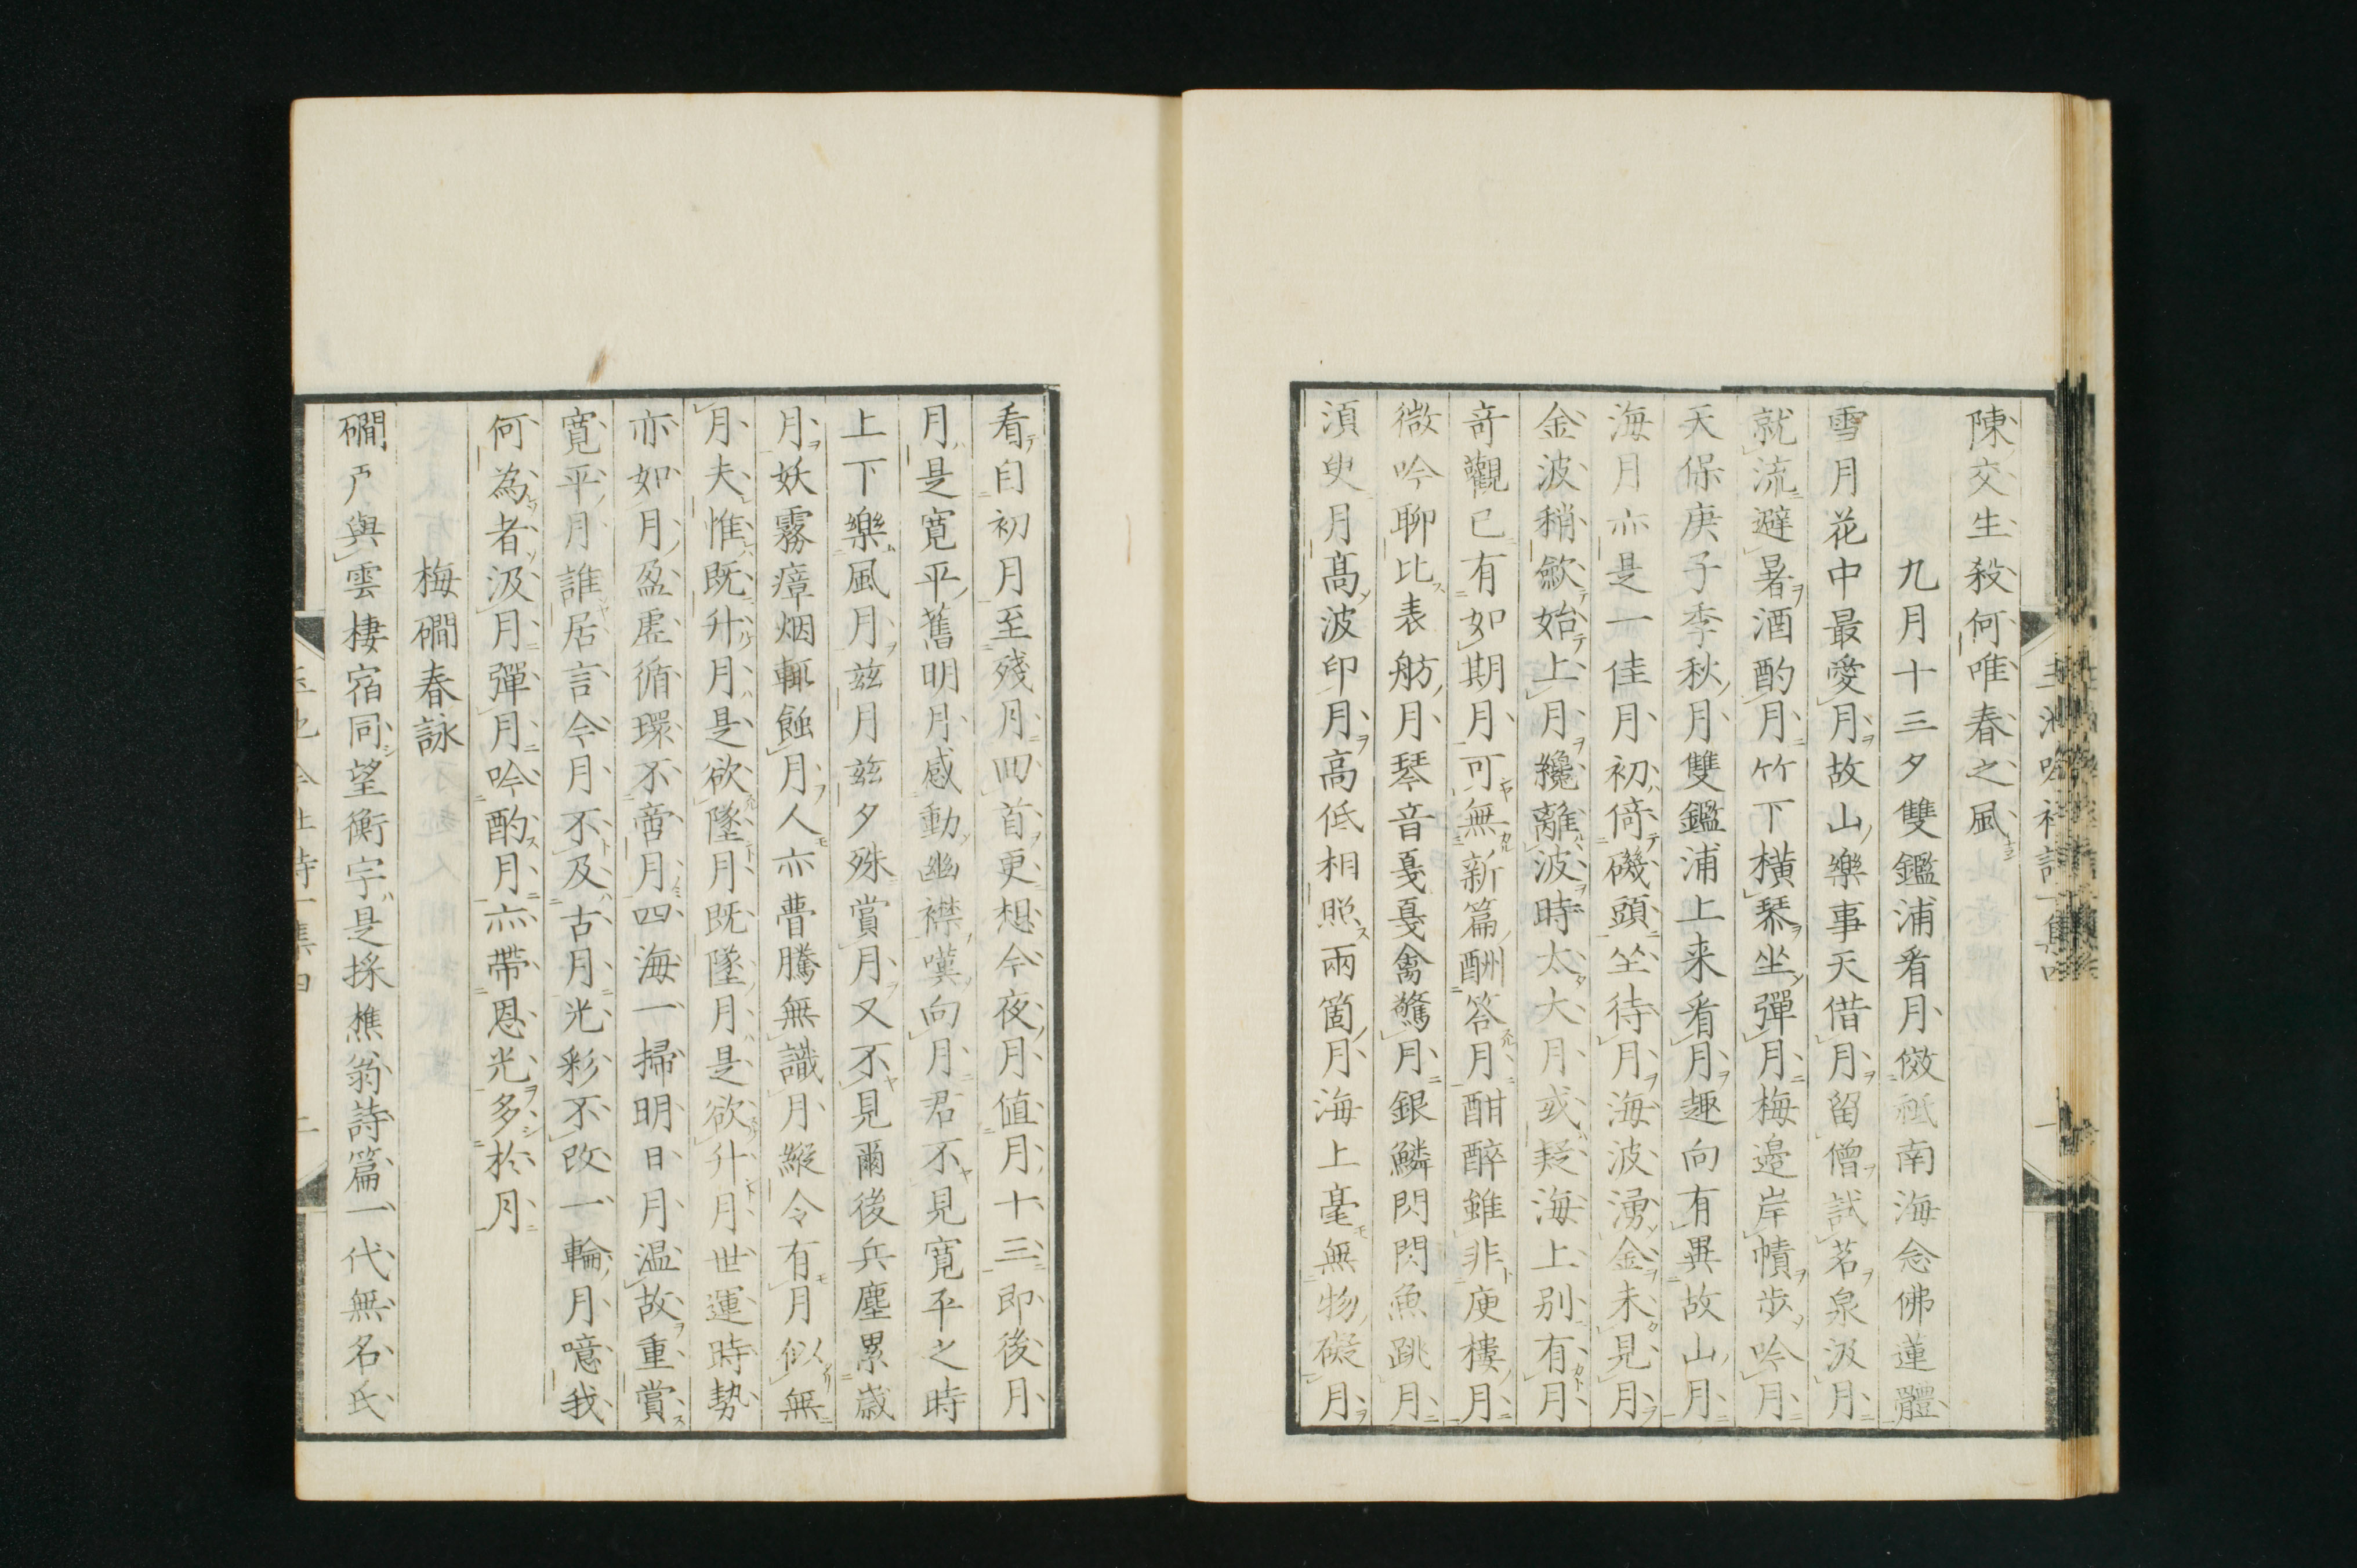 陳交生殺何唯春之風
九月十三夕雙鑑浦看月傚祗南海念佛蓮體
雪月花中最愛月故山樂事天借月留僧試茗泉汲月
就流避暑酒酌月竹下橫琴坐彈月梅邊岸幘步吟月
天保庚子季秋月雙鑑浦上来看月趣向有異故山月
海月亦是一佳月初倚磯頭坐待月海波湧金未見月
金波稍斂始上月纔離波時太大月或疑海上別有月
奇觀已有如期月可無新篇酬答月酣醉雖非庾樓月
微吟聊比表舫月琴音戛戛禽驚月銀鱗閃閃魚跳月
須臾月高波印月高低相照兩箇月海上毫無物礙月
看自初月至殘月回首更想今夜月值月十三即後月
月是寬平舊明月感動幽襟嘆向月君不見寬平之時
上下樂風月玆月玆夕殊賞月又不見爾後兵塵累歲
月妖霧瘴烟輒蝕月人亦瞢騰無識月縱令有月似無
月夫惟既升月是欲墜月既墜月是欲升月世運時勢
亦如月盈虛循環不啻月四海一掃明日月温故重賞
寬平月誰居言今月不及古月光彩不改一輪月噫我
何為者汲月彈月吟酌月亦帶恩光多於月
梅磵春詠
磵戸與雲棲宿同望衡宇是採樵翁詩篇一代無名氏